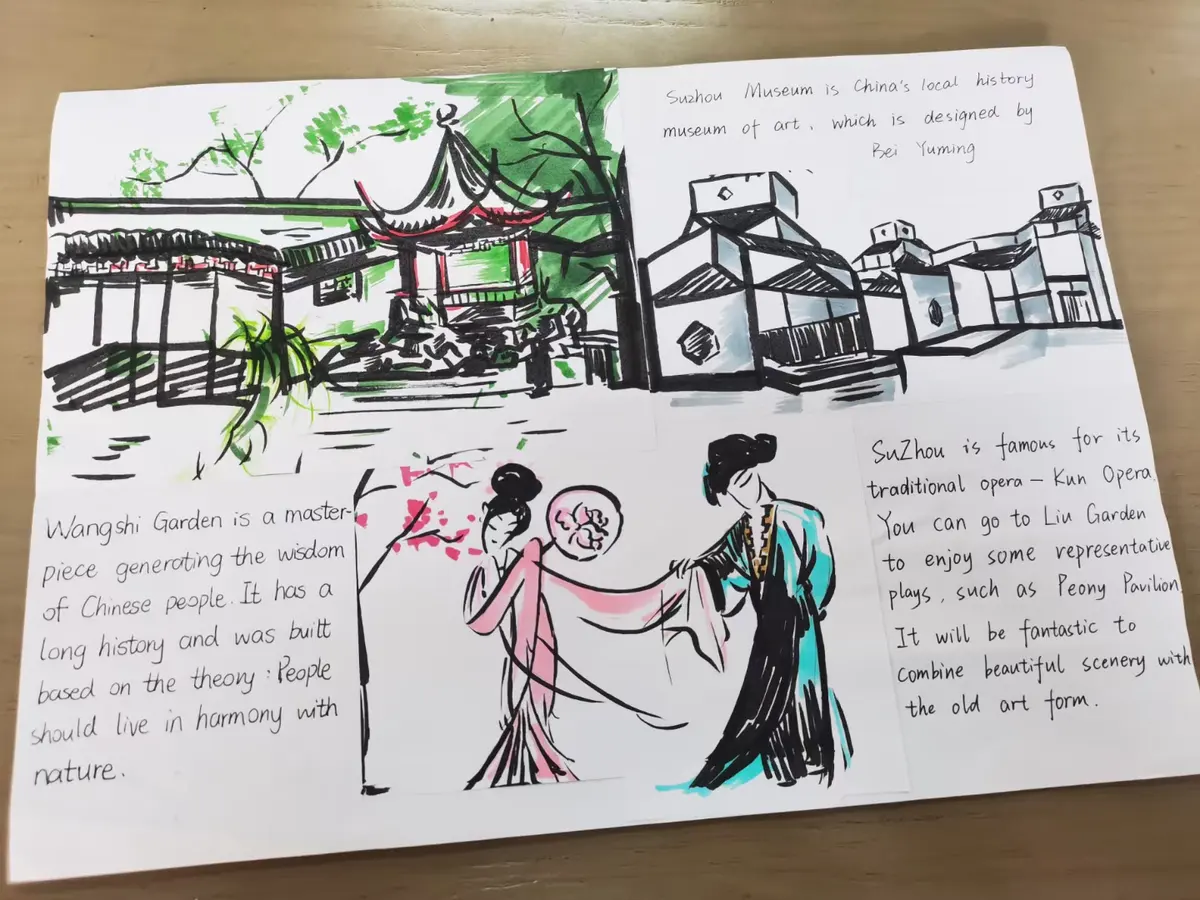 Suzhou Museum is China's local history
museum of art, which is designed by
Bei Yuming
Wangshi Garden is a master-
piece generating the wisdom
of Chinese people. It has a
long history and was built
based on the theory: People
should live in harmony with
nature.
SuZhou is famous for its
traditional opera — Kun Opera.
You can go to Liu Garden
to enjoy some representative
plays, such as Peony Pavilion
It will be fantastic to
combine beautiful scenery with
the old art form.